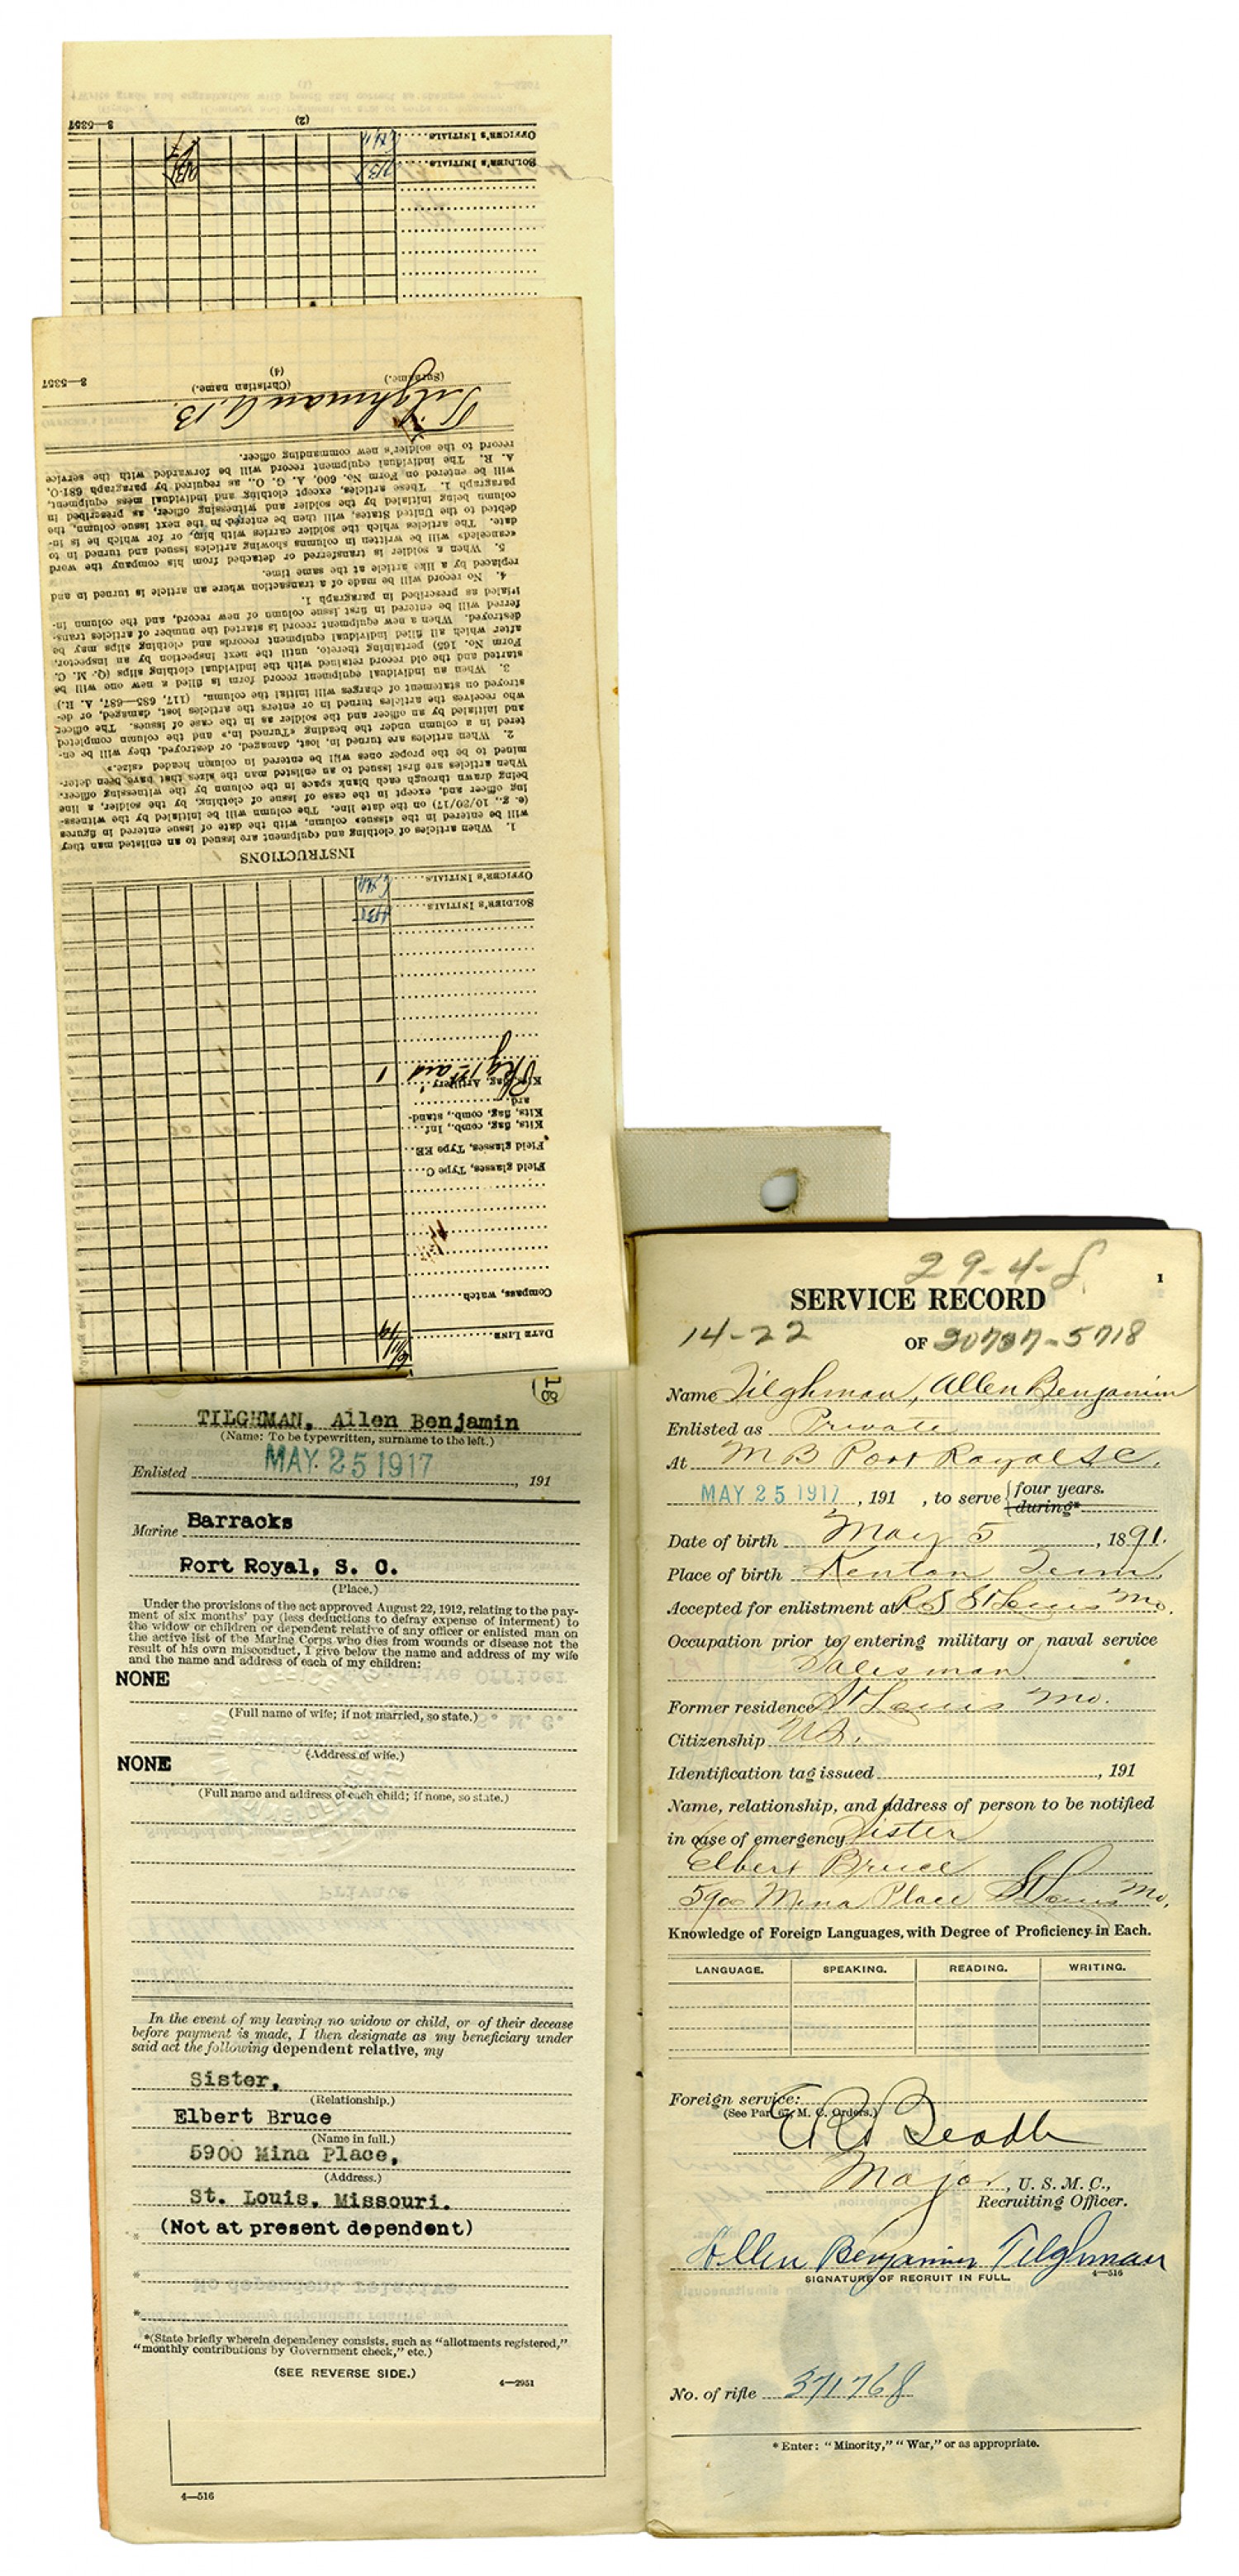 8—5357
(2)
OFFICER'S INITIALS
SOLDIER'S INITIALS
8—5357
(4)
(Surname.) (Christian name.)
Tilghman A. B.
record to the soldier's new commanding officer.
A. R. The individual equipment record will be forwarded with the service
will be entered on Form No. 600, A. G. O., as required by paragraph 681-O,
paragraph 1. These articles, except clothing and individual mess equipment,
column being initialed by the soldier and witnessing officer, as prescribed in
debted to the United States, will then be entered in the next issue column, the
date. The articles which the soldier carries with him, or for which he is in-
«canceled» will be written in columns showing articles issued and turned in to
5. When a soldier is transferred or detached from his company the word
replaced by a like article at the same time.
4. No record will be made of a transaction where an article is turned in and
itialed as prescribed in paragraph 1.
ferred will be entered in first issue column of new record, and the column in-
destroyed. When a new equipment record is started the number of articles trans-
after which all filled individual equipment records and clothing slips may be
Form No. 165) pertaining thereto, until the next inspection by an inspector,
started and the old record retained with the individual clothing slips (Q. M. C.
3. When an individual equipment record form is filled a new one will be
stroyed on statement of charges will initial the column. (117, 685—687, A. R.)
who receives the articles turned in or enters the articles lost, damaged, or de-
and initialed by an officer and the soldier as in the case of issues. The officer
tered in a column under the heading «Turned in,» and the column completed
2. When articles are turned in, lost, damaged, or destroyed, they will be en-
mined to be the proper ones will be entered in column headed «size.»
When articles are first issued to an enlisted man the sizes that have been deter-
being drawn through each blank space in the column by the witnessing officer.
ing officer and, except in the case of issue of clothing, by the soldier, a line
(e. g., 10/20/17) on the date line. The column will be initialed by the witness-
will be entered in the «issues» column, with the date of issue entered in figures
1. When articles of clothing and equipment are issued to an enlisted man they
INSTRUCTIONS
OFFICER'S INITIALS
SOLDIER'S INITIALS
Kits, flag, Artillery
Kits, flag, comb., stand-
ard
Kits, flag, comb., Inf.
Field glasses, Type EE
Field glasses, Type C
Compass, watch
DATE LINE
18
TILGHMAN, Allen Benjamin
(Name: To be typewritten, surname to the left.)
Enlisted MAY 25 1917, 191
Marine Barracks
Port Royal, S. C.
(Place.)
Under the provisions of the act approved August 22, 1912, relating to the pay-
ment of six months' pay (less deductions to defray expense of interment) to
the widow or children or dependent relative of any officer or enlisted man on
the active list of the Marine Corps who dies from wounds or disease not the
result of his own misconduct, I give below the name and address of my wife
and the name and address of each of my children:
NONE
(Full name of wife; if not married, so state.)
(Address of wife.)
NONE
(Full name and address of each child; if none, so state.)
In the event of my leaving no widow or child, or of their decease
before payment is made, I then designate as my beneficiary under
said act the following dependent relative, my
Sister,
(Relationship.)
Elbert Bruce
(Name in full.)
5900 Mina Place,
(Address.)
St. Louis, Missouri.
(Not at present dependent)
*
*
*
*(State briefly wherein dependency consists, such as "allotments registered,"
"monthly contributions by Government check," etc.)
(SEE REVERSE SIDE.)
4—2951
4—516
29-4-8
1
SERVICE RECORD
14-22
OF 20737-5718
Name Tilghman, Allen Benjamin
Enlisted as Private
At M B Port Royal S.C.
MAY 25 1917, 191 , to serve {four years.
during*
Date of birth May 5, 1891.
Place of birth Kenton Tenn
Accepted for enlistment at R S St Louis Mo.
Occupation prior to entering military or naval service
Salesman
Former residence St Louis Mo.
Citizenship U.S.
Identification tag issued , 191
Name, relationship, and address of person to be notified
in case of emergency Sister
Elbert Bruce
5900 Mina Place St Louis Mo.
Knowledge of Foreign Languages, with Degree of Proficiency in Each.
LANGUAGE. SPEAKING. READING. WRITING.
Foreign service:
(See Par. 67, M. C. Orders.)
Major, U. S. M. C.,
Recruiting Officer.
Allen Benjamin Tilghman
SIGNATURE OF RECRUIT IN FULL.
4—516
No. of rifle 371768
* Enter: "Minority," "War," or as appropriate.